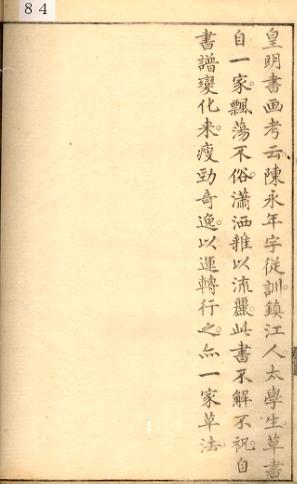 84
皇明書画考云陳永年字從訓鎮江人太學生草書
自一家飄蕩不俗瀟洒雜以流麗此書不解不祝自
書譜變化来瘦勁奇逸以運轉行之亦一家草法